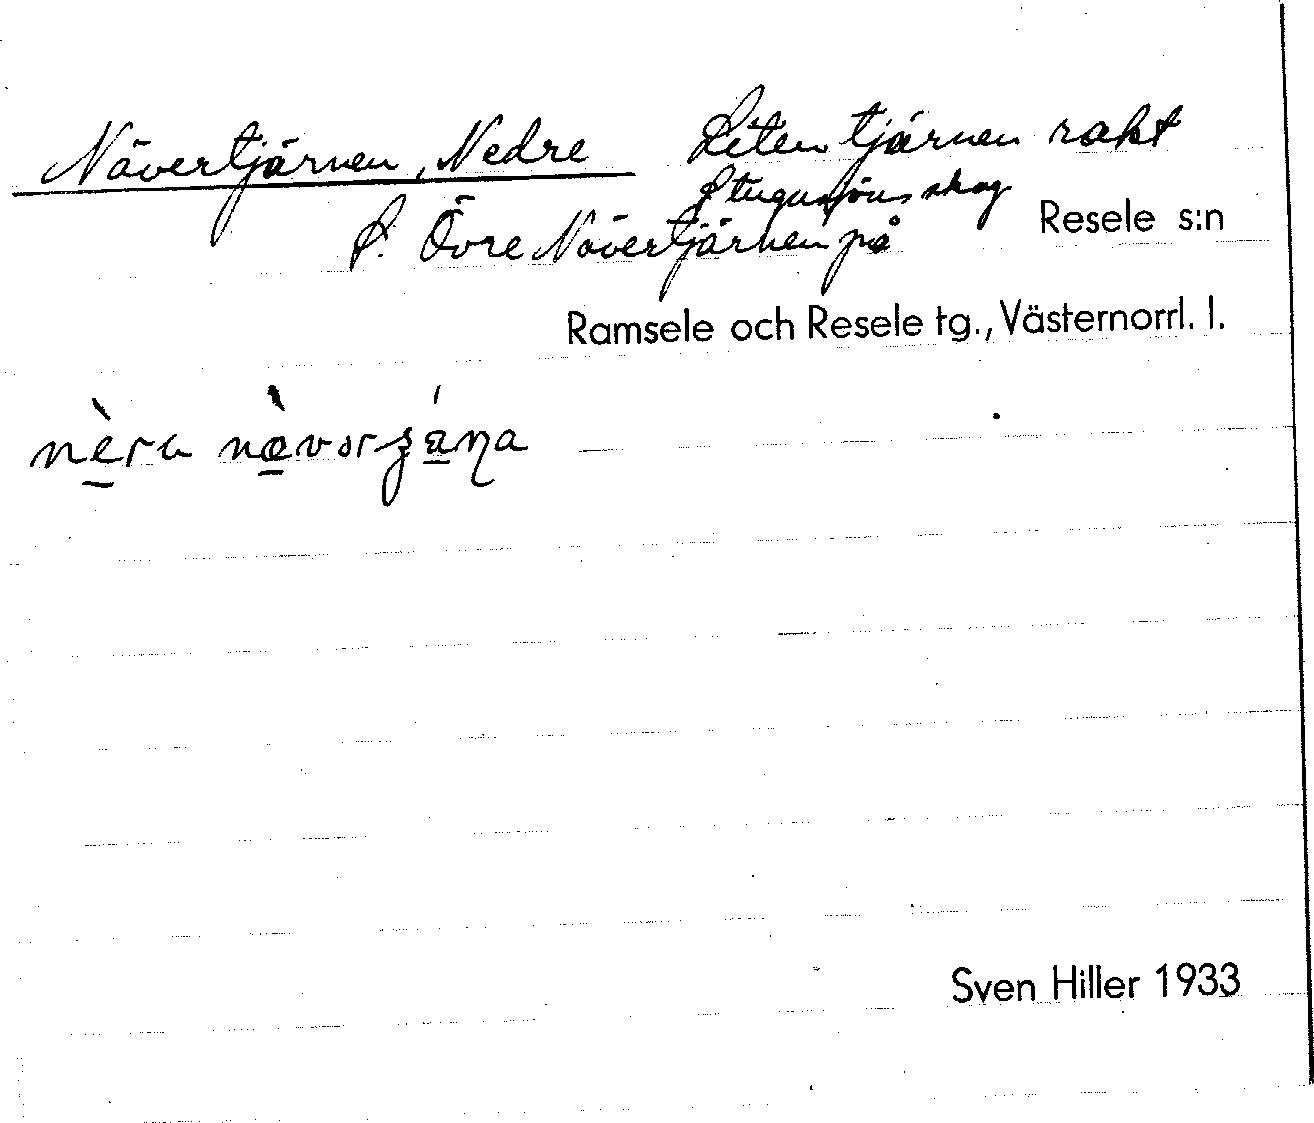 Nävertjärnen, Nedre Liten tjärnen rakt
S. Övre Nävertjärnen på Stugusjöns skog
Resele s:n
Ramsele och Resele tg., Västernorrl. l.
Sven Hiller 1933